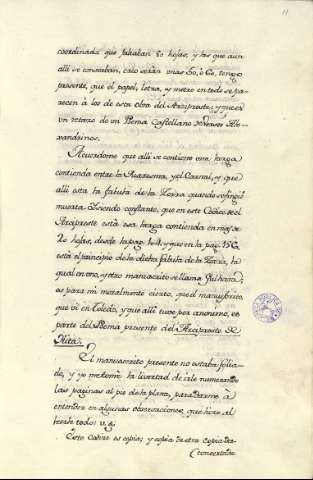 11
coordinada que faltaban 80 hojas, y las que aun
allí se conservaban, creo serían unas 50, ó 60, tengo
presente, que el papel, letra, y metro en todo se pa-
recen à los de esta obra del Arcipreste; y que es
un retazo de un Poema Castellano Versos Ale-
xandrinos.
Acuerdome que allí se contiene una larga
contienda entre la Quaresma, y el Carnal, y que
allí esta la fabula de la Zorra quando se fingió
muerta. Siendo constante, que en este Codice del
Arcipreste está esa larga contienda en mas de
20 hojas, desde la pag. y que en la pag. 156
está el principio de la dicha fabula de la Zorra, la
qual en uno, y otro manuscrito se llama Gulhara;
es para mí moralmente cierto, que el manuscrito,
que ví en Toledo, y que allí tuve por anonimo, es
parte del Poema presente del Arcipreste de
Hita.
El manuscrito presente no estaba folia-
do, y yo me tomé la libertad de irle numerando
las paginas al pie de la plana, para darme á
entender en algunas observaciones, que hice al
leerle todo: v. g.
Este Codice es copia; y copia de otra copia de-
(tenerse